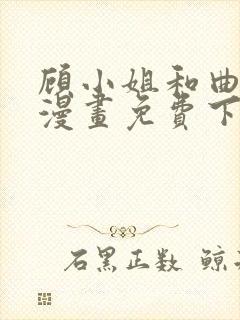 顾小姐和曲
漫畫免費下
石黑正数 鲸